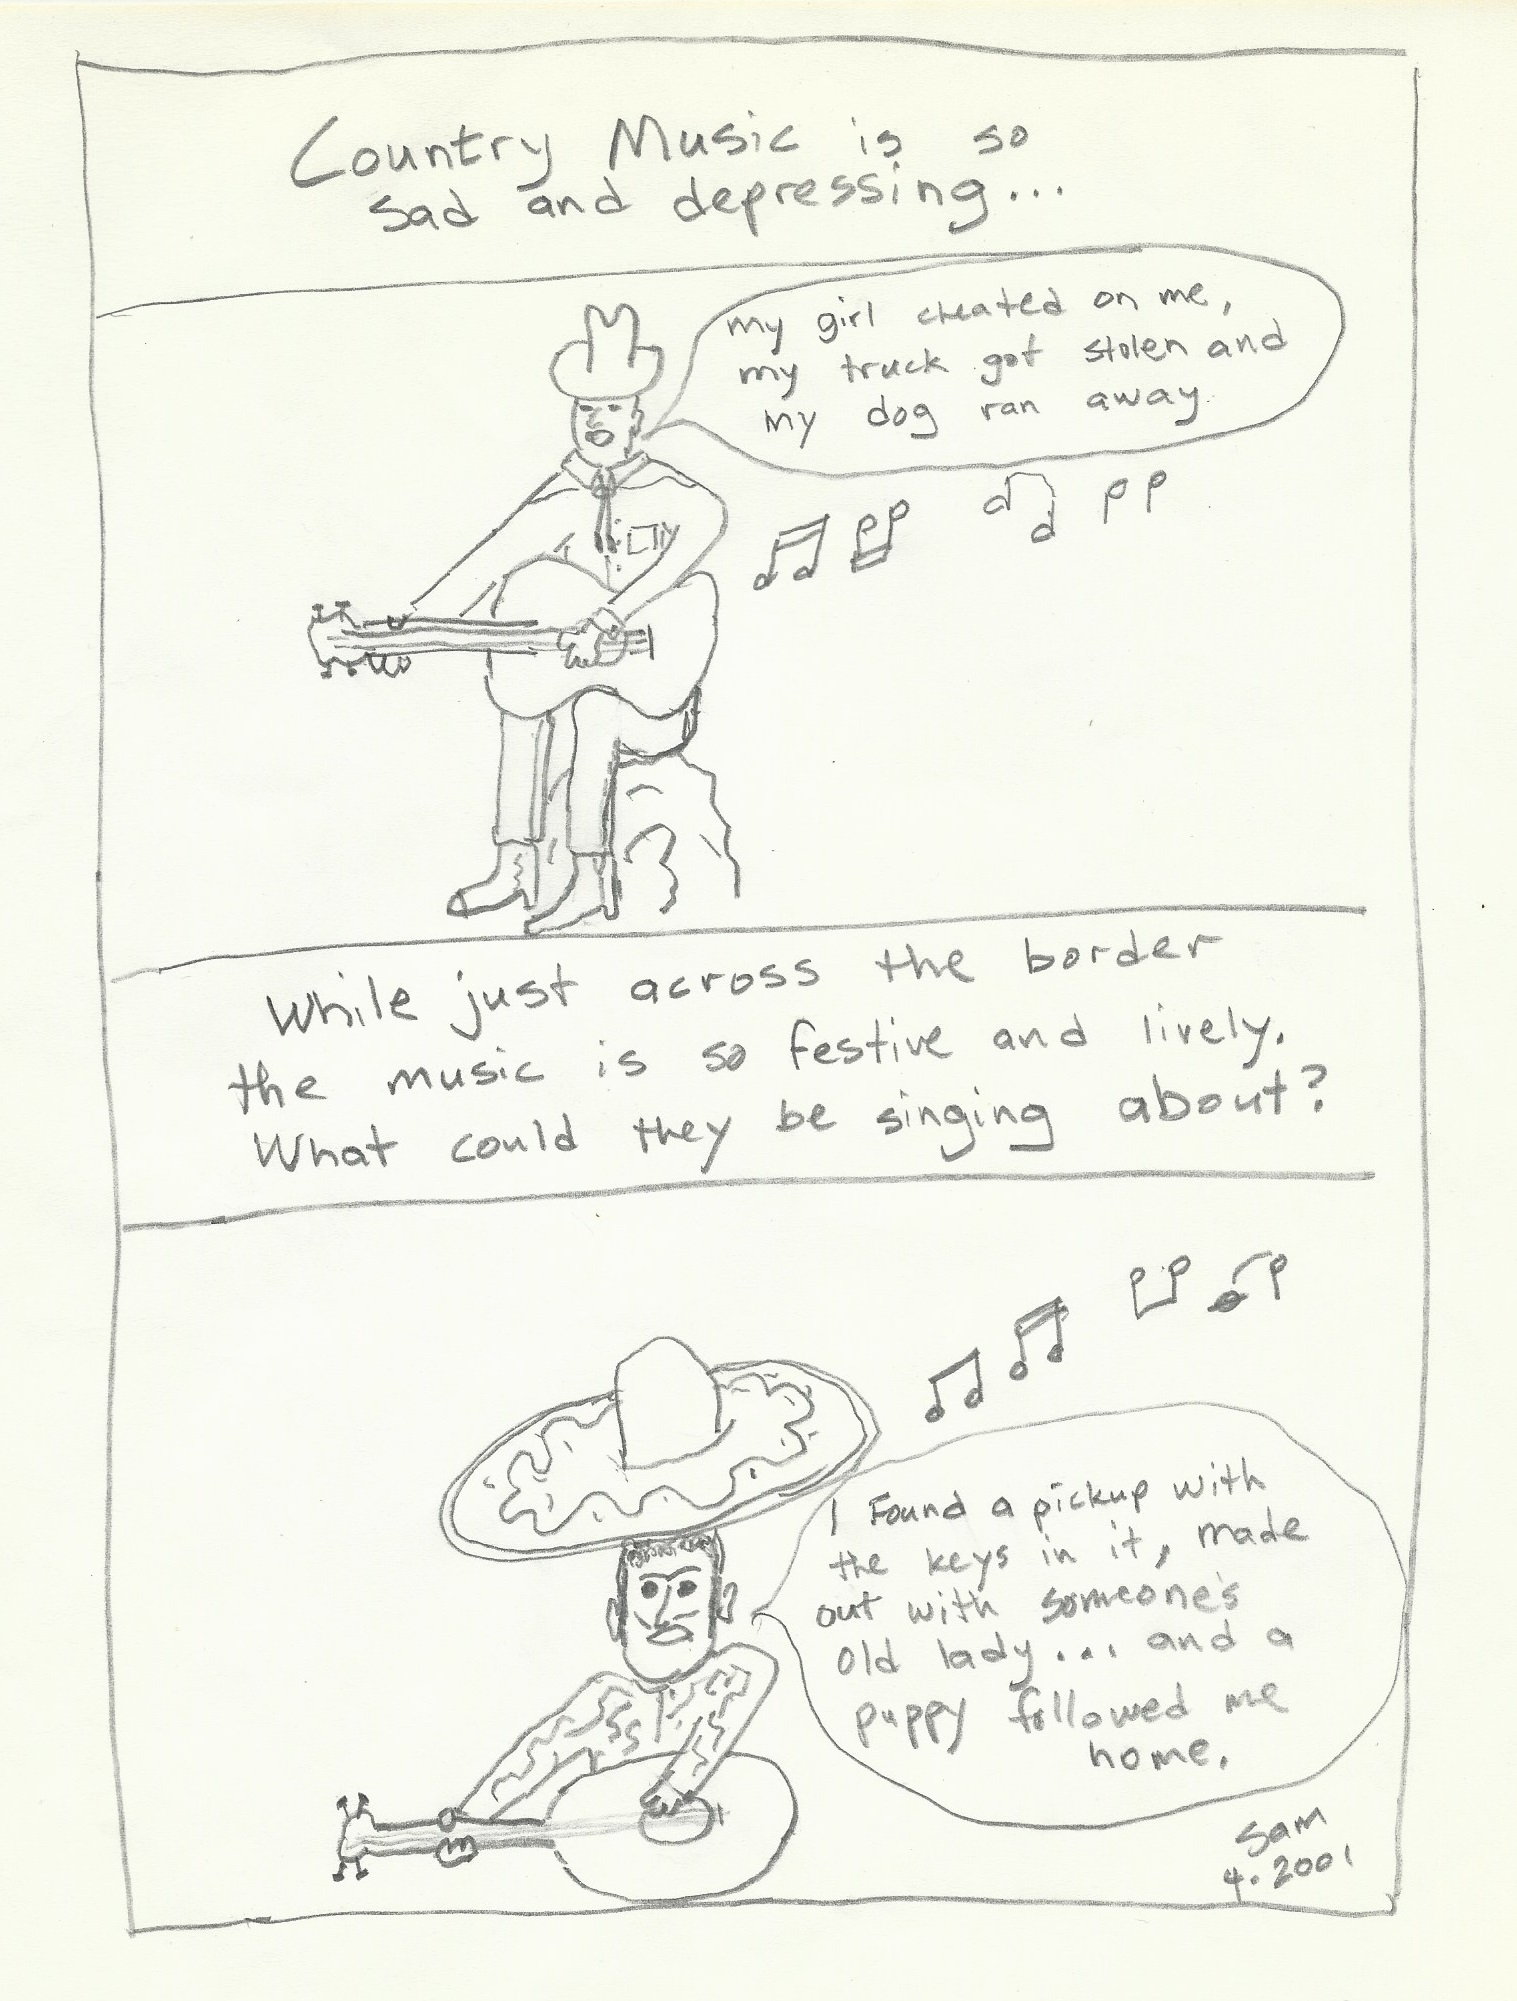 Country Music is so
sad and depressing...
my girl cheated on me,
my truck got stolen and
my dog ran away
While just across the border
the music is so festive and lively.
What could they be singing about?
I Found a pickup with
the keys in it, made
out with someone's
old lady... and a
puppy followed me
home.
Sam
4.2001